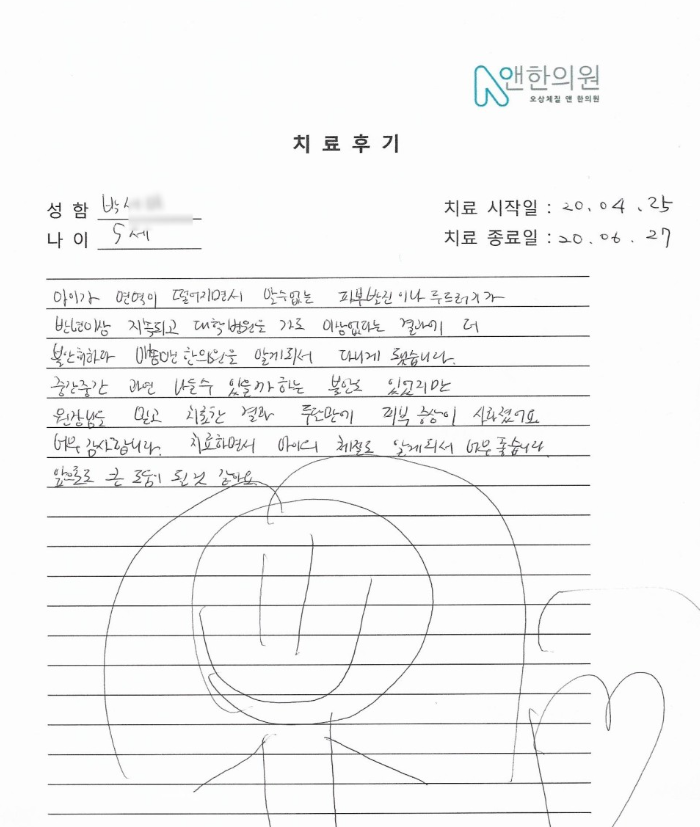 앤한의원
오상체질 앤 한의원
치료후기
성 함 박
나 이 5세
치료 시작일 : 20.04.25
치료 종료일 : 20.06.27
아이가 면역이 떨어지면서 알수없는 피부발진이나 두드러기가
반년이상 지속되고 대학병원을 가도 이상없다는 결과에 더
불안해하다 한의원을 알게되서 다니게 됐습니다.
중간중간 과연 나을수 있을까하는 불안도 있었지만
원장님을 믿고 치료한 결과 두달만에 피부 증상이 사라졌어요
너무 감사합니다. 치료하면서 아이의 체질도 알게되서 너무 좋습니다.
앞으로도 큰 도움이 될것 같아요.